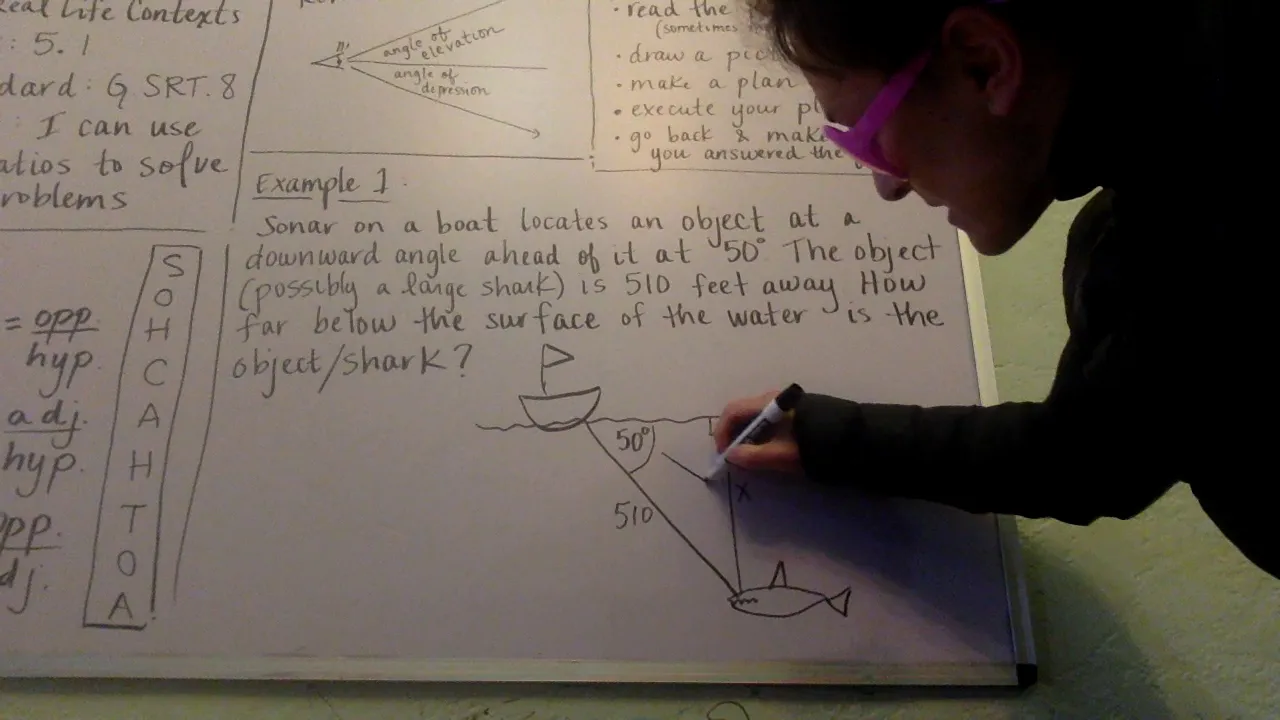 Real Life Contexts
: 5.1
dard: G SRT.8
: I can use
atios to solve
roblems
angle of
elevation
angle of
depression
• read the
(sometimes
• draw a pic
• make a plan
• execute your pl
• go back & make
you answered the
Example 1.
Sonar on a boat locates an object at a
downward angle ahead of it at 50° The object
(possibly a large shark) is 510 feet away How
far below the surface of the water is the
object/shark?
= opp.
hyp.
adj.
hyp.
opp.
dj.
S
O
H
C
A
H
T
O
A
50°
510
x